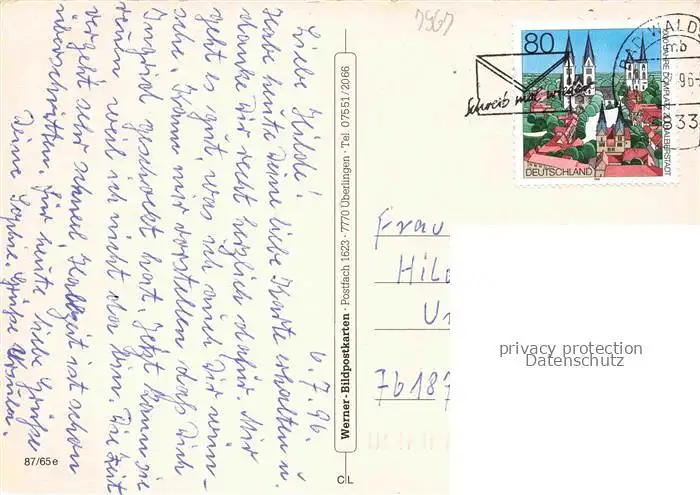 6.7.96.
Liebe Hilde!
Habe heute Deine liebe Karte erhalten u.
danke Dir recht herzlich dafür. Mir
geht es gut, was ich auch Dir wün-
sche. Kann mir vorstellen daß Dich
Ingrid geschockt hat. Jetzt kann sie
reisen weil ich nicht da bin. Die Zeit
vergeht sehr schnell, Halbzeit ist schon
überschritten. Für heute liebe Grüße
Deine Sophie. Grüße
87/65e
Werner-Bildpostkarten · Postfach 1623 · 7770 Überlingen · Tel. 07551/2066
C|L
7967
80
DEUTSCHLAND
1000 JAHRE DOMPLATZ HALBERSTADT
Schreib mal wieder
BAD WALDS
96-
8833
Frau
Hil
Ur
76187
privacy protection
Datenschutz